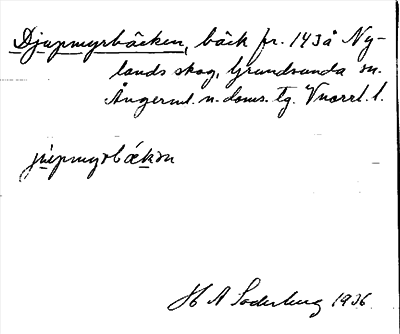 Djupmyrbäcken, bäck fr. 143å Ny-
lands skog, Grundsunda sn.
Ångerml. n. doms. tg. Vnorrl. l.
jʉ̀pmyrbækən
H A Söderberg 1936